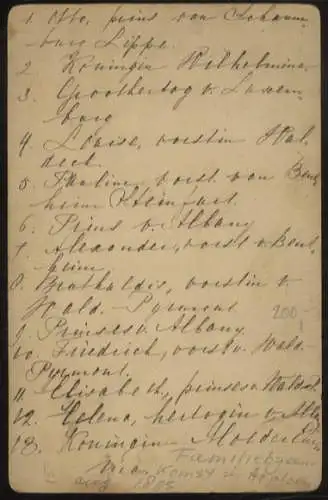 1. Otto, prins von Schaum-
burg Lippe.
2. Koningin Wilhelmina.
3. Groothertog v. Luxem-
burg
4. Louise, vorstin Wal-
deck.
5. Pauline, vorst. von Bent-
heim Steinfurt.
6. Prins v. Albany
7. Alexander, vorst v. Bent-
heim.
8. Bathildis, vorstin v.
Wald. Pyrmont
9. Prinses v. Albany.
10. Friedrich, vorst v. Wald.
Pyrmont.
11. Elisabeth, prinses v. Waldeck
12. Helena, hertogin v. Alba
13. Koningin Moeder Emma
200-
Familiebijeen
komst